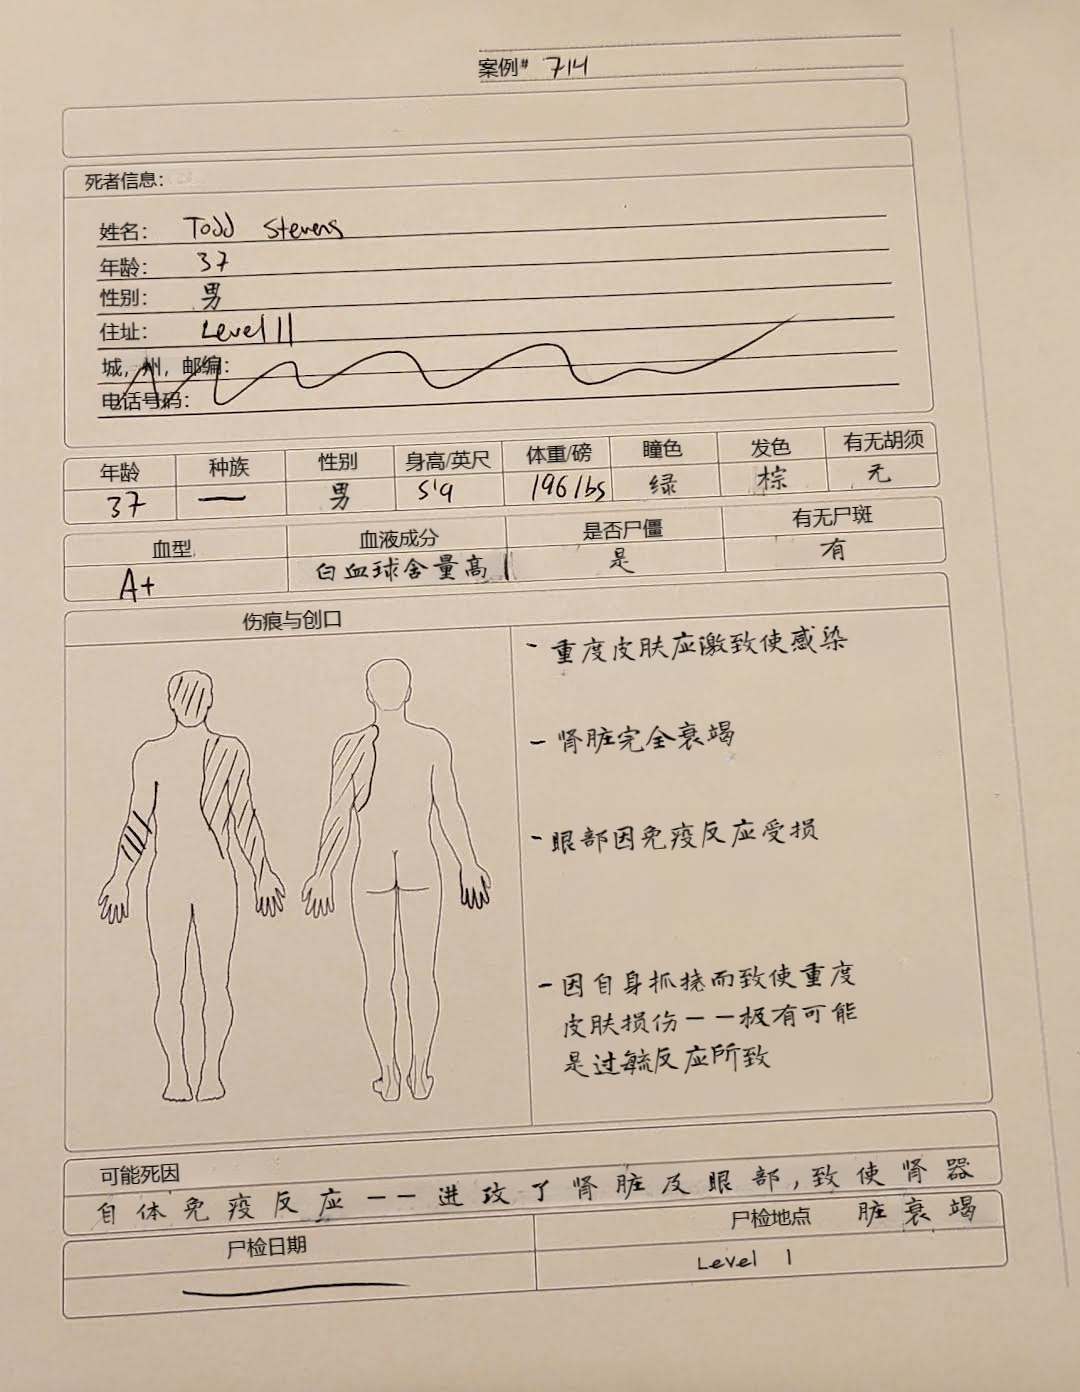 案例# 714
死者信息：
姓名： Todd Stevens
年龄： 37
性别： 男
住址： Level 11
城，州，邮编：
电话号码：
年龄 种族 性别 身高/英尺 体重/磅 瞳色 发色 有无胡须
37 — 男 5'9 196 lbs 绿 棕 无
血型 血液成分 是否尸僵 有无尸斑
A+ 白血球含量高 是 有
伤痕与创口
- 重度皮肤应激致使感染
- 肾脏完全衰竭
- 眼部因免疫反应受损
- 因自身抓挠而致使重度
皮肤损伤——极有可能
是过毓反应所致
可能死因
自体免疫反应——进攻了肾脏及眼部，致使肾器
脏衰竭
尸检日期 尸检地点
Level 1